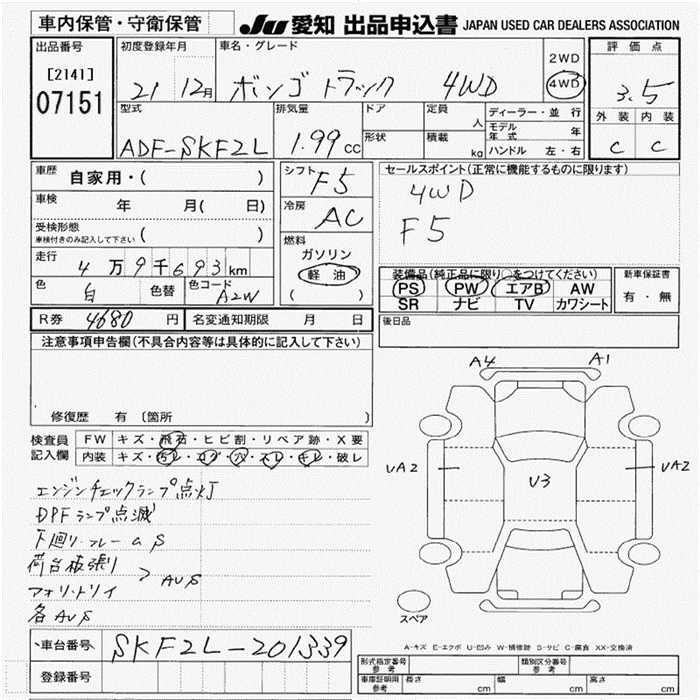 車内保管・守衛保管 JU 愛知 出品申込書 JAPAN USED CAR DEALERS ASSOCIATION
出品番号 初度登録年月 車名・グレード 評価点
[2141] 21 12月 ボンゴ トラック 4WD 2WD 4WD 3.5
07151 型式 排気量 ドア 定員 ディーラー・並行 外装 内装
人 モデル年式 年
ADF-SKF2L 1.99cc 形状 積載 kg ハンドル 左・右 C C
車歴 自家用・( ) シフト F5 セールスポイント(正常に機能するものに限ります)
車検 年 月( 日) 冷房 AC 4WD
受検形態 F5
車検付きのみ記入して下さい ( ) 燃料
走行 4万9千693km ガソリン 装備品(純正品に限り○をつけてください) 新車保証書
色 白 色替 色コード A2W 軽油 PS PW エアB AW 有・無
( ) SR ナビ TV カワシート
R券 4680円 名変通知期限 月 日 後日品
注意事項申告欄(不具合内容等は具体的に記入して下さい)
A4 A1
修復歴 有 〔箇所
検査員 FW キズ・飛石・ヒビ割・リペア跡・X要
記入欄 内装 キズ・汚レ・コゲ・穴・スレ・キレ・破レ
UA2 U3 UA2
エンジンチェックランプ点灯
DPFランプ点滅
下廻り.フレーム a S
荷台板張り
> AUS
アオリ.トリイ
各AUS
スペア
車台番号 SKF2L-201339
A-キズ E-エクボ U-凹み W-補修跡 S-サビ C-腐食 XX-交換済
登録番号 型式指定番号 参考 類別区分番号 参考
車庫証明用 参考 長さ cm 幅 cm 高さ cm